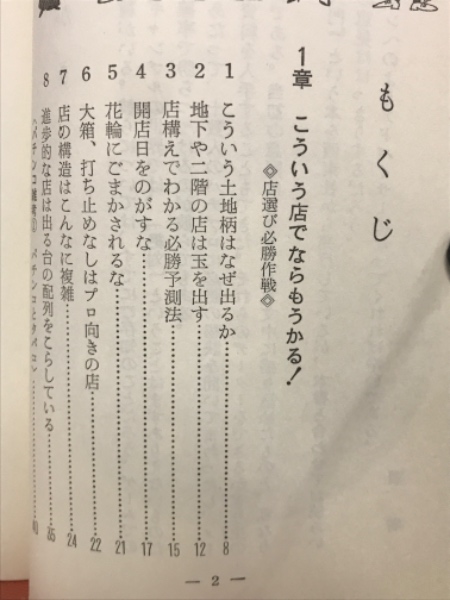 もくじ
1章 こういう店でならもうかる!
◇店選び必勝作戦◇
1 こういう土地柄はなぜ出るか……8
2 地下や二階の店は玉を出す……12
3 店構えでわかる必勝予測法……15
4 開店日をのがすな……17
5 花輪にごまかされるな……21
6 大箱、打ち止めなしはプロ向きの店……22
7 店の構造はこんなに複雑……24
8 進歩的な店は出る台の配列をこらしている……35
— 2 —